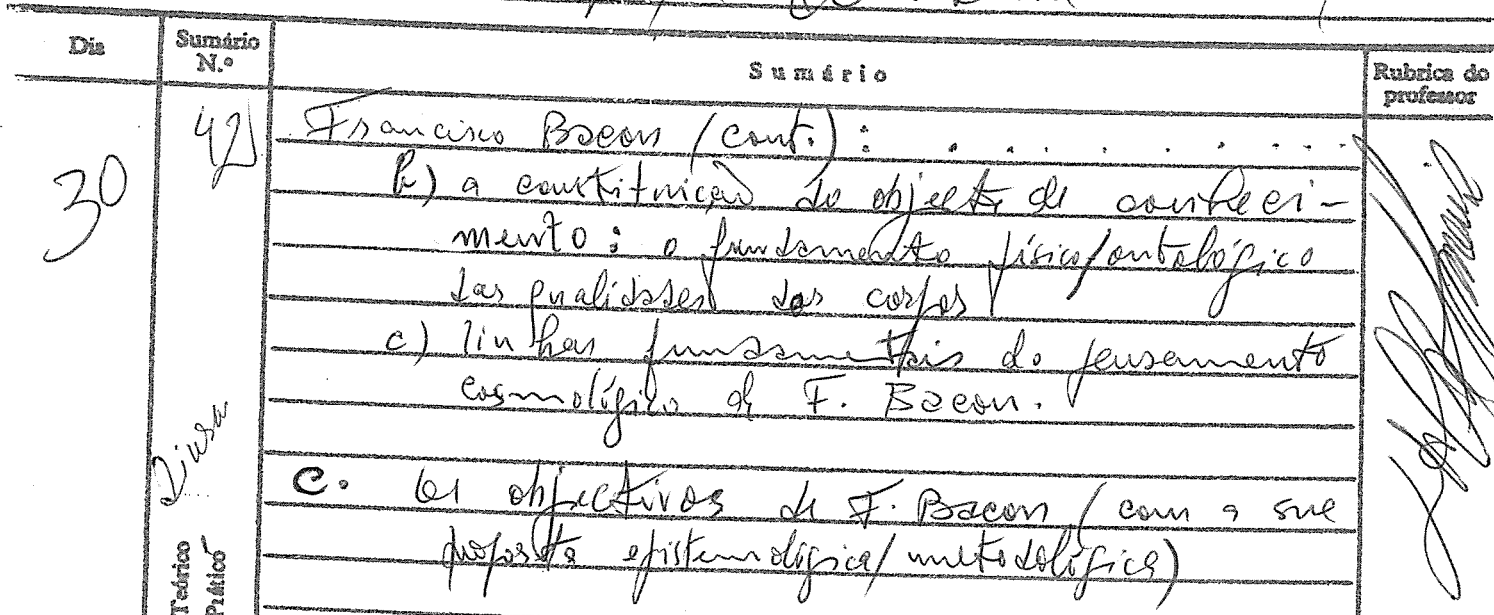 Dia
Sumário N.º
Sumário
Rubrica do professor
30
42
Francisco Bacon (cont.): . . . . . . . .
b) a constituição do objecto de conheci-
mento: o fundamento físico/ontológico
das qualidades dos corpos
c) linhas fundamentais do pensamento
cosmológico de F. Bacon.
C. Os objectivos de F. Bacon (com a sua
proposta epistemológica/metodológica)
Teórico
Prático